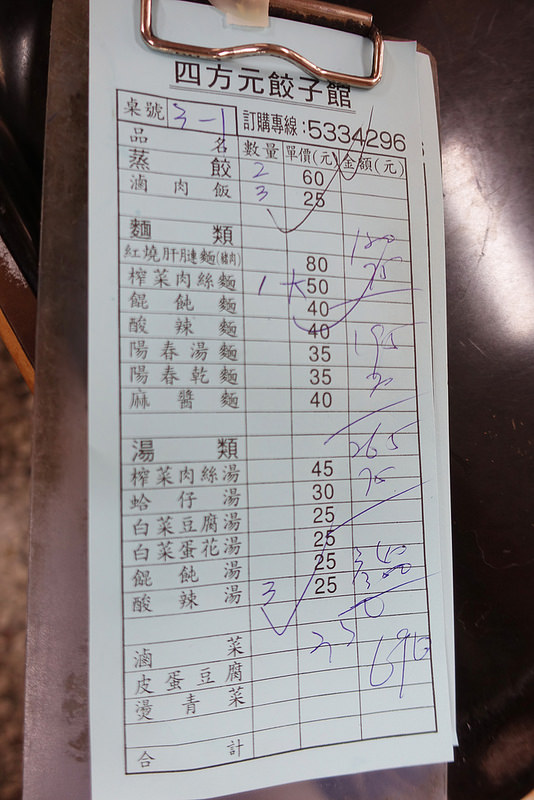 四方元餃子館
桌號 3-1 訂購專線:5334296
品名 數量 單價(元) 金額(元)
蒸餃 2 60
滷肉飯 3 25
麵類
紅燒肝腱麵(豬肉) 80
榨菜肉絲麵 1 大 50
餛飩麵 40
酸辣麵 40
陽春湯麵 35 195
陽春乾麵 35
麻醬麵 40
湯類 265
榨菜肉絲湯 45 75
蛤仔湯 30
白菜豆腐湯 25
白菜蛋花湯 25
餛飩湯 25 340
酸辣湯 3 25
滷菜
皮蛋豆腐
燙青菜
合計